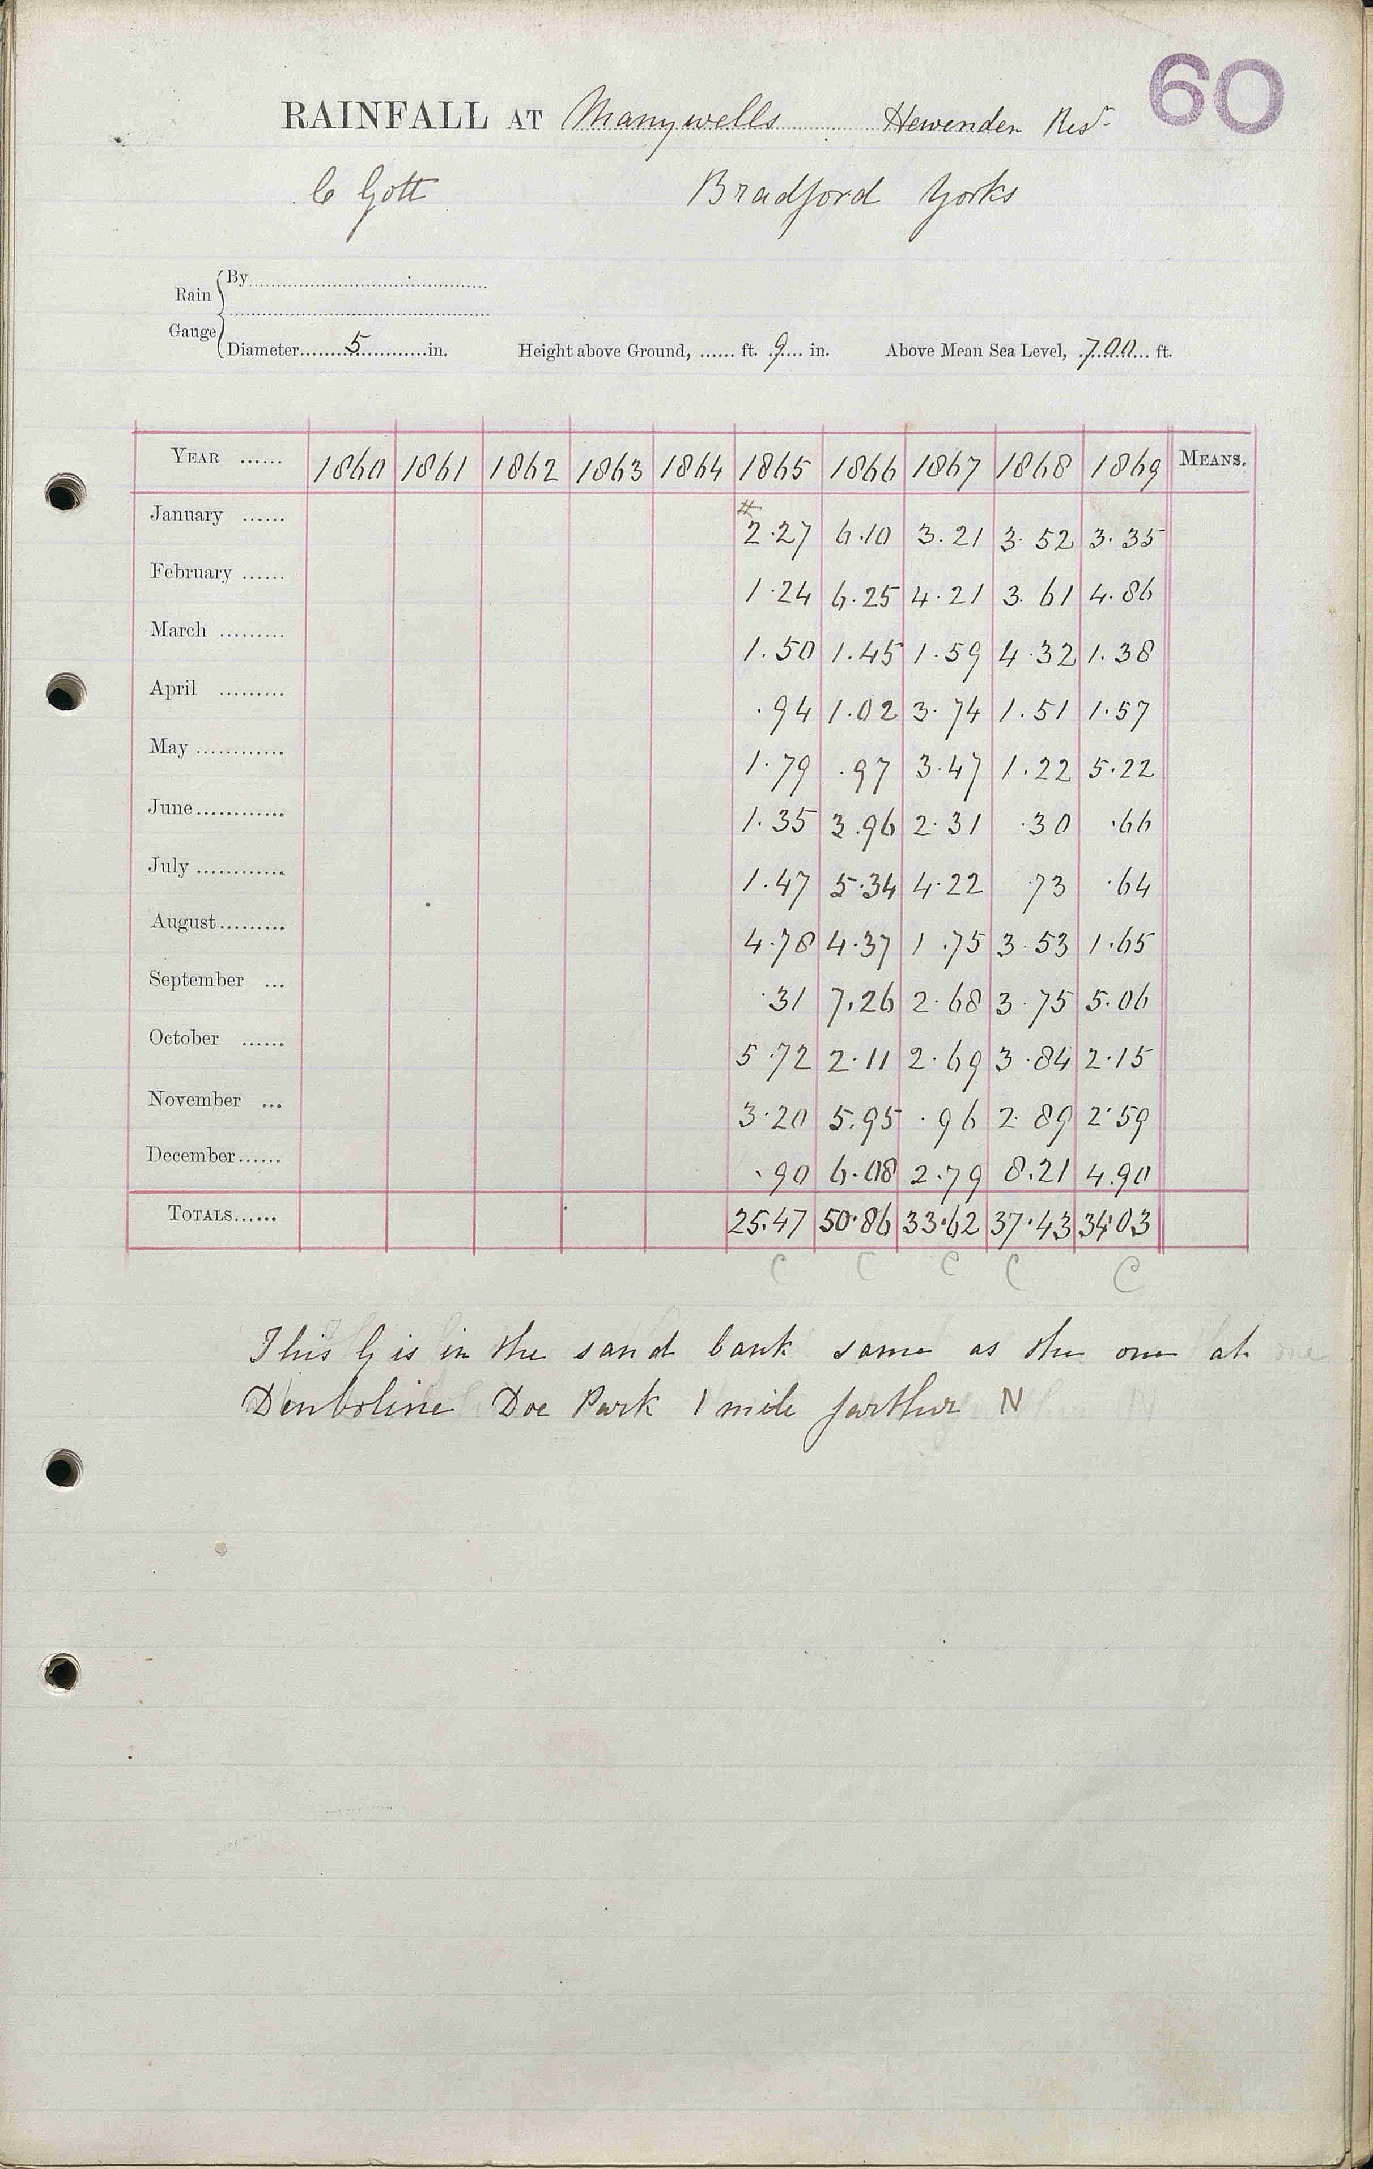 60
RAINFALL AT Manywells Hewenden Resr
C Gott Bradford Yorks
Rain Gauge
By
Diameter 5 in. Height above Ground, ft. 9 in. Above Mean Sea Level, 700 ft.
YEAR 1860 1861 1862 1863 1864 1865 1866 1867 1868 1869 MEANS.
January # 2.27 6.10 3.21 3.52 3.35
February 1.24 6.25 4.21 3.61 4.86
March 1.50 1.45 1.59 4.32 1.38
April .94 1.02 3.74 1.51 1.57
May 1.79 .97 3.47 1.22 5.22
June 1.35 3.96 2.31 .30 .66
July 1.47 5.34 4.22 73 .64
August 4.78 4.37 1.75 3.53 1.65
September .31 7.26 2.68 3.75 5.06
October 5.72 2.11 2.69 3.84 2.15
November 3.20 5.95 .96 2.89 2.59
December .90 6.08 2.79 8.21 4.90
TOTALS 25.47 50.86 33.62 37.43 34.03
C C C C C
This G is in the sand bank same as the one at
Doe Park 1 mile farther N